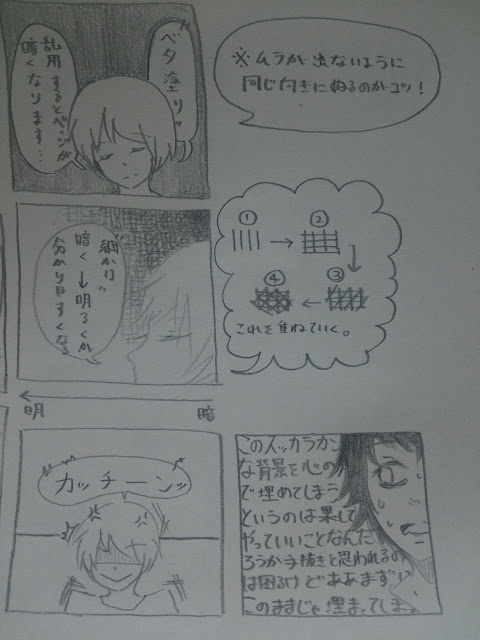 "ベタ塗り"
乱用するとページが
暗くなります…
※ムラが出ないように
同じ向きにぬるのがコツ!
"網かけ"
暗く→明るくが
分かりやすくなる
①
②
③
④
これを重ねていく。
明
暗
カッチーンッ
このスッカラカン
な背景を心の
で埋めてしまう
というのは果して
やっていいことなんだ
ろうか手抜きと思われるの
は困るけどああまずい
このままじゃ埋まってしま